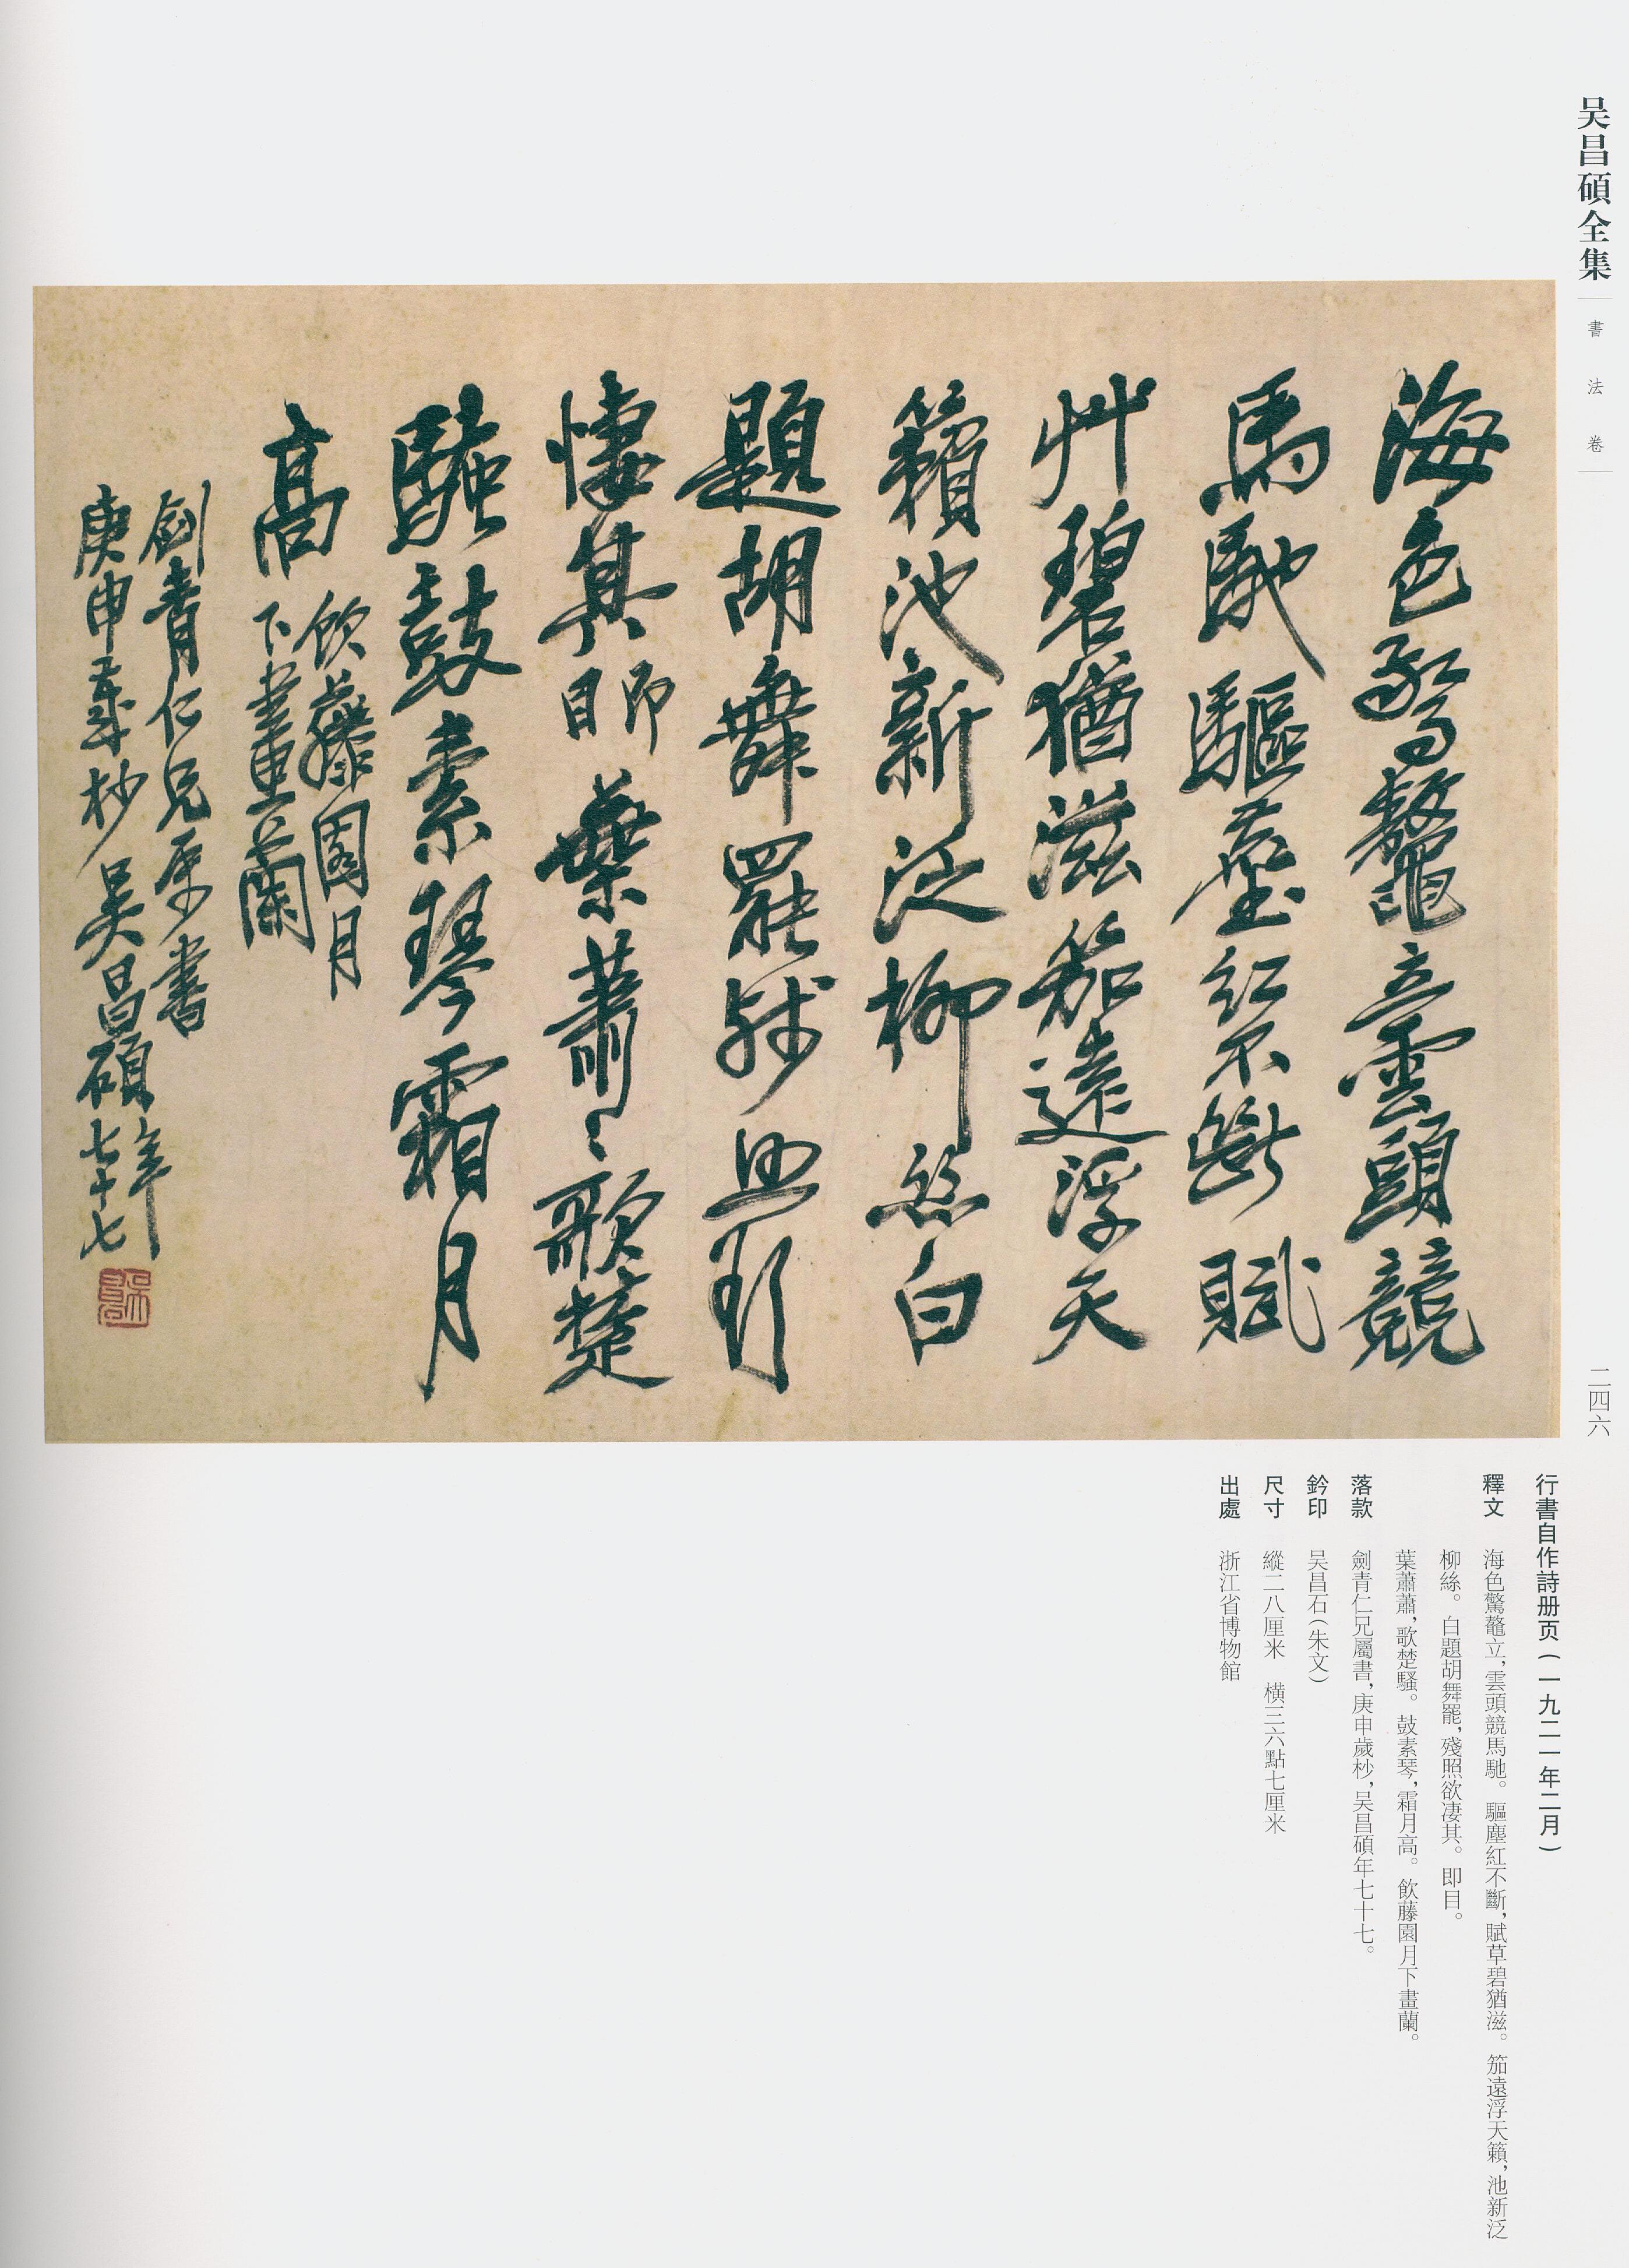 吴昌碩全集
書法卷
二四六
海色驚鼇立雲頭競
馬馳驅塵紅不斷賦
艸碧猶滋笳遠浮天
籟池新泛柳絲白
題胡舞罷殘照欲
悽其即目葉蕭〻歌楚
騷鼓素琴霜月
高飲藤園月
下畫蘭
劍青仁兄屬書
庚申歲杪吳昌碩年
七十七
行書自作詩册页(一九二一年二月)
釋文 海色驚鼇立,雲頭競馬馳。驅塵紅不斷,賦草碧猶滋。笳遠浮天籟,池新泛
柳絲。白題胡舞罷,殘照欲凄其。即目。
葉蕭蕭,歌楚騷。鼓素琴,霜月高。飲藤園月下畫蘭。
落款 劍青仁兄屬書,庚申歲杪,吴昌碩年七十七。
鈐印 吴昌石(朱文)
尺寸 縱二八厘米 横三六點七厘米
出處 浙江省博物館